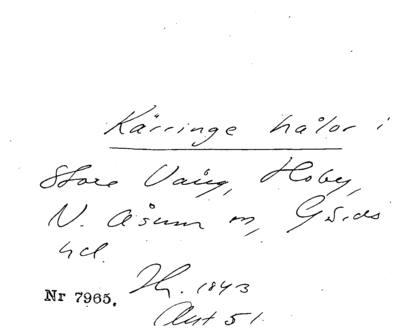 Kärringe hålor i
Store Vång, Hoby,
N. Åsum sn, Gärds
hd.
Nr 7965. 1843
Akt 51.